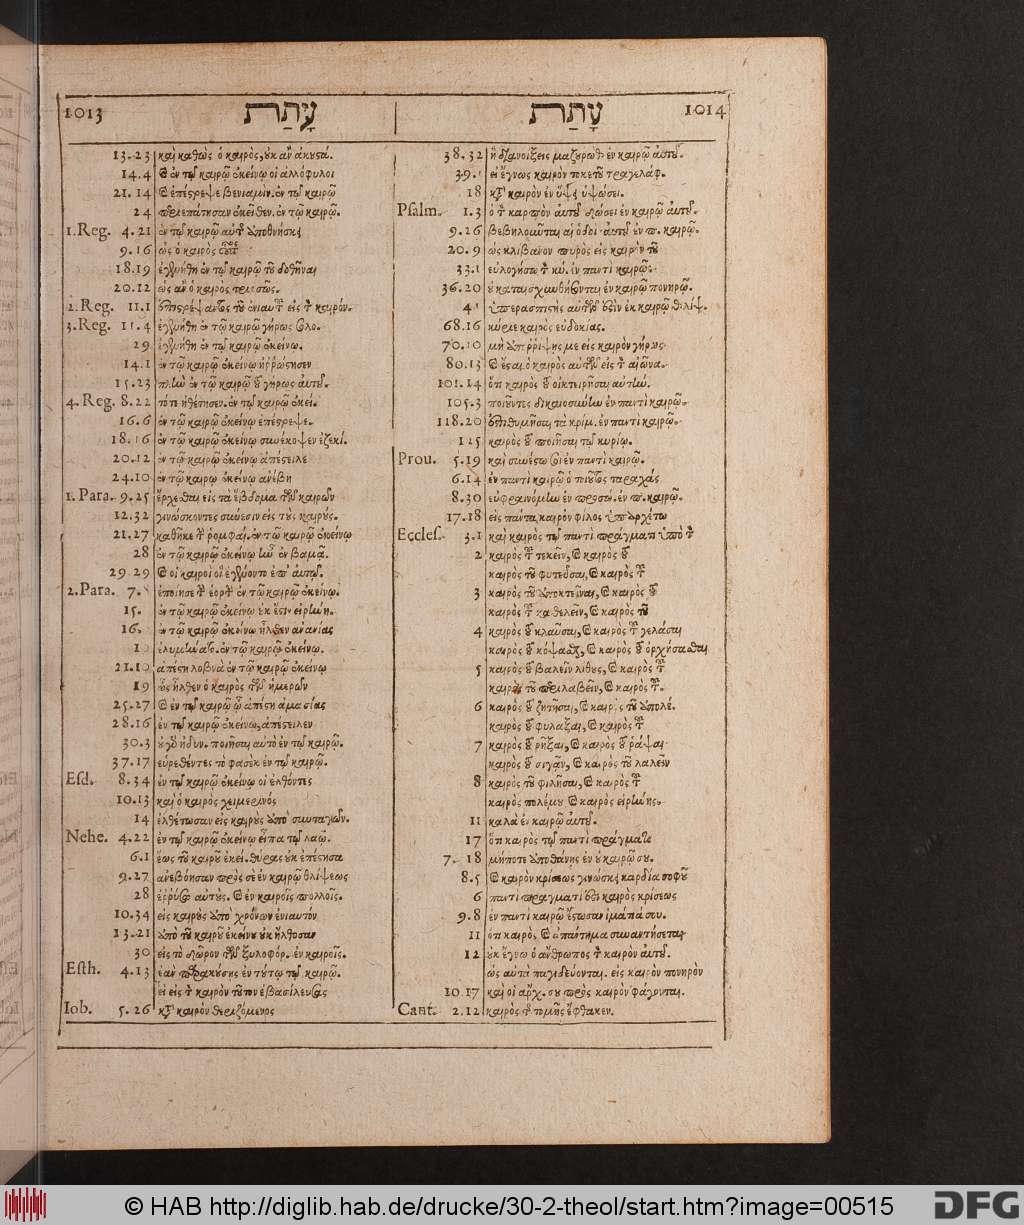 1013
עָתַת
עָתַת
1014
13.23 καὶ καθὼς ὁ καιρὸς, ἐκ
14.4 ἐν τῷ καιρῷ ἐκείνῳ οἱ ἀλλόφυλοι
21.14 βενιαμὶν. ἐν τῷ καιρῷ
24 ἐκεῖθεν. ἐν τῷ καιρῷ.
1. Reg. 4.21 ἐν τῷ καιρῷ
9.16 ὡς ὁ καιρὸς
18.19 ἐν τῷ καιρῷ τοῦ δοθῆναι
20.12 ὁ καιρὸς
2. Reg. 11.1
3. Reg. 11.4 ἐν τῷ καιρῷ γήρως
29 ἐν τῷ καιρῷ ἐκείνῳ.
14.1 ἐν τῷ καιρῷ ἐκείνῳ ἠῤῥώστησεν
15.23 ἐν τῷ καιρῷ γήρως αὐτοῦ.
4. Reg. 8.22 τότε ἠθέτησεν. ἐν τῷ καιρῷ ἐκεί.
16.6 ἐν τῷ καιρῷ ἐκείνῳ ἐπέστρεψε.
18.16 ἐν τῷ καιρῷ ἐκείνῳ συνέκοψεν ἐζεκί.
20.12 ἐν τῷ καιρῷ ἐκείνῳ ἀπέστειλε
24.10 ἐν τῷ καιρῷ ἐκείνῳ ἀνέβη
1. Para. 9.25 ἔρχεσθαι εἰς τὰ ἕβδομα τῶν καιρῶν
12.32 γινώσκοντες σύνεσιν εἰς τοὺς καιρούς.
21.27 ἐν τῷ καιρῷ ἐκείνῳ
28 ἐν τῷ καιρῷ ἐκείνῳ ἐν βαμᾶ.
29.29
2. Para. 7. ἐποίησε ἐν τῷ καιρῷ ἐκείνῳ.
15. ἐν τῷ καιρῷ ἐκείνῳ
16. ἐν τῷ καιρῷ ἐκείνῳ ἦλθεν ἀνανίας
ἐν τῷ καιρῷ ἐκείνῳ.
21.10 ἀπέστη λοβνὰ ἐν τῷ καιρῷ ἐκείνῳ
19 ὡς ἦλθεν ὁ καιρὸς τῶν ἡμερῶν
25.27 ἐν τῷ καιρῷ ᾧ ἀπέστη ἀμασίας
28.16 ἐν τῷ καιρῷ ἐκείνῳ, ἀπέστειλεν
30.3 ποιῆσαι αὐτὸ ἐν τῷ καιρῷ.
37.17 εὑρεθέντες τὸ φασὲκ ἐν τῷ καιρῷ.
Esd. 8.34 ἐν τῷ καιρῷ ἐκείνῳ οἱ ἐλθόντες
10.13 καὶ ὁ καιρὸς χειμερινός
14 ἐλθέτωσαν εἰς καιροὺς ἀπὸ συνταγῶν.
Nehe. 4.22 ἐν τῷ καιρῷ ἐκείνῳ εἶπα τῷ λαῷ.
6.1 ἕως τοῦ καιροῦ ἐκεί. θύρας οὐκ ἐπέστησα
9.27 ἀνεβόησαν πρὸς σὲ ἐν καιρῷ θλίψεως
28 αὐτοὺς. ἐν καιροῖς πολλοῖς.
10.34 εἰς καιροὺς ἀπὸ χρόνων ἐνιαυτόν
13.21 ἀπὸ τοῦ καιροῦ ἐκείνου οὐκ ἤλθοσαν
30 εἰς τὸ δῶρον τῶν ξυλοφόρ. ἐν καιροῖς.
Esth. 4.13 ἐὰν παρακούσῃς ἐν τούτῳ τῷ καιρῷ.
εἰ εἰς τὸν καιρὸν τοῦτον ἐβασίλευσας
Iob. 5.26 καιρὸν θεριζόμενος
38.32 ἢ διανοίξεις μαζουρὼθ ἐν καιρῷ αὐτοῦ.
39.1 εἰ ἔγνως καιρὸν τοκετοῦ τραγελάφ.
18 καιρὸν ἐν ὕψει ὑψώσει.
Psalm. 1.3 ὃ τὸν καρπὸν αὐτοῦ δώσει ἐν καιρῷ αὐτοῦ.
9.26 βεβηλοῦνται αἱ ὁδοὶ αὐτοῦ ἐν π. καιρῷ.
20.9 ὡς κλίβανον πυρὸς εἰς καιρὸν τοῦ
33.1 εὐλογήσω τὸν κύ. ἐν παντὶ καιρῷ.
36.20 οὐ καταισχυνθήσονται ἐν καιρῷ πονηρῷ.
ὑπερασπιστὴς αὐτῶν ἐστὶν ἐκ καιρῷ θλίψ.
68.16 κύριε καιρὸς εὐδοκίας.
70.10 μὴ ἀποῤῥίψῃς με εἰς καιρὸν γήρως
80.13 ἔσται ὁ καιρὸς αὐτῶν εἰς τὸν αἰῶνα.
101.14 ὅτι καιρὸς τοῦ οἰκτειρῆσαι αὐτήν.
105.3 ποιοῦντες δικαιοσύνην ἐν παντὶ καιρῷ.
118.20 ἐπιθυμῆσαι τὰ κρίμ. ἐν παντὶ καιρῷ.
125 καιρὸς τοῦ ποιῆσαι τῷ κυρίῳ.
Prou. 5.19 καὶ συνέστω σοι ἐν παντὶ καιρῷ.
6.14 ἐν παντὶ καιρῷ ὁ τοιοῦτος ταραχάς
8.30 εὐφραινόμην ἐν προσώ. ἐν π. καιρῷ.
17.18 εἰς πάντα καιρὸν φίλος ὑπαρχέτω
Eccles. 3.1 καὶ καιρὸς τῷ παντὶ πράγματι ὑπὸ τὸν
2 καιρὸς τοῦ τεκεῖν, καὶ καιρὸς τοῦ
καιρὸς τοῦ φυτεῦσαι, καὶ καιρὸς τοῦ
3 καιρὸς τοῦ ἀποκτεῖναι, καὶ καιρὸς τοῦ
καιρὸς τοῦ καθελεῖν, καὶ καιρὸς τοῦ
4 καιρὸς τοῦ κλαῦσαι, καὶ καιρὸς τοῦ γελάσαι
καιρὸς τοῦ κόψασθαι, καὶ καιρὸς τοῦ ὀρχήσασθαι
5 καιρὸς τοῦ βαλεῖν λίθους, καὶ καιρὸς τοῦ
καιρὸς τοῦ περιλαβεῖν, καὶ καιρὸς τοῦ.
6 καιρὸς τοῦ ζητῆσαι, καὶ καιρὸς τοῦ ἀπολέ.
καιρὸς τοῦ φυλάξαι, καὶ καιρὸς τοῦ
7 καιρὸς τοῦ ῥῆξαι, καὶ καιρὸς τοῦ ῥάψαι
καιρὸς τοῦ σιγᾶν, καὶ καιρὸς τοῦ λαλεῖν
8 καιρὸς τοῦ φιλῆσαι, καὶ καιρὸς τοῦ
καιρὸς πολέμου καὶ καιρὸς εἰρήνης.
11 καλὰ ἐν καιρῷ αὐτοῦ.
17 ὅτι καιρὸς τῷ παντὶ πράγματι
7.18 μήποτε ἀποθάνῃς ἐν οὐ καιρῷ σου.
8.5 καὶ καιρὸν κρίσεως γινώσκει καρδία σοφοῦ
6 παντὶ πράγματί ἐστι καιρὸς κρίσεως
9.8 ἐν παντὶ καιρῷ ἔστωσαν ἱμάτιά σου.
11 ὅτι καιρὸς καὶ ἀπάντημα συναντήσεται
12 οὐκ ἔγνω ὁ ἄνθρωπος τὸν καιρὸν αὐτοῦ.
ὡς αὐτὰ παγιδεύονται. εἰς καιρὸν πονηρὸν
10.17 καὶ οἱ ἄρχ. σου πρὸς καιρὸν φάγονται.
Cant. 2.12 καιρὸς τῆς τομῆς ἔφθακεν.
© HAB http://diglib.hab.de/drucke/30-2-theol/start.htm?image=00515
DFG